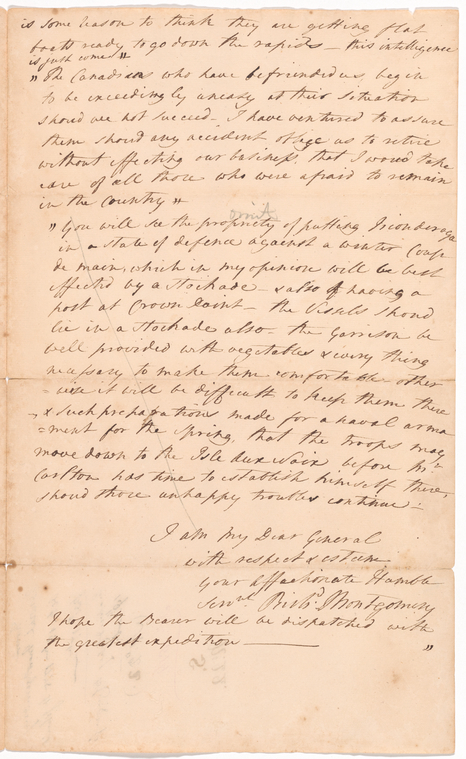 is some reason to think they are getting flat
boats ready to go down the rapids – this intelligence
is just come "
" The Canadians who have befriended us, begin
to be exceedingly uneasy at their situation
should we not succeed – I have ventured to assure
them should any accident oblige us to retire
without effecting our business, that I would take
care of all those who were afraid to remain
in the Country "
omit
" You will see the propriety of putting Ticonderoga
in a state of defence against a winter Coup
de main, which in my opinion will be best
effected by a stockade – & also of having a
post at Crown Point – the Vessels should
lie in a stockade also – the Garrison be
well provided with vegetables & every thing
necessary to make them comfortable other
= wise it will be difficult to keep them there
& such preparations made for a naval arma
= ment for the Spring, that the troops may
move down to the Isle aux Noix before Mr.
Carlton has time to establish himself there,
should those unhappy troubles continue –
I am My Dear General
with respect & esteem
your affectionate Humble
Servt. Richd. Montgomery
I hope the Bearer will be dispatched with
the greatest expedition ——— "